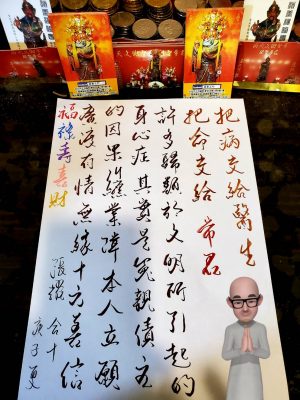 把病交給醫生
把命交給 帝君
許多歸類於文明所引起的
身心症其實是冤親債主
的因果纏業障本人立願
廣渡有情無緣十方善信
福祿壽喜財
合十
庚子夏